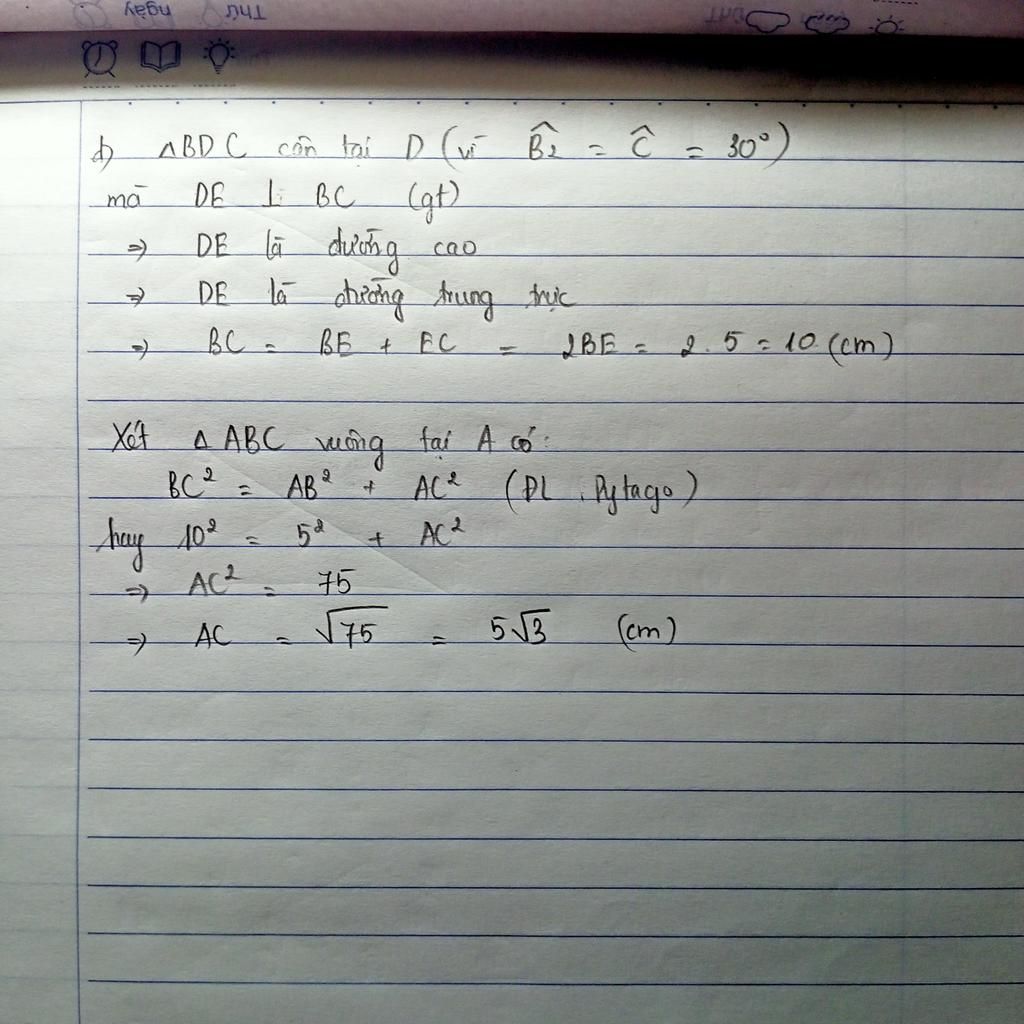 Thứ Ngày
d) ΔBDC cân tại D (vì B̂₂ = Ĉ = 30°)
mà DE ⊥ BC (gt)
⇒ DE là đường cao
⇒ DE là đường trung trực
⇒ BC = BE + EC = 2BE = 2.5 = 10 (cm)
Xét Δ ABC vuông tại A có:
BC² = AB² + AC² (ĐL Pytago)
hay 10² = 5² + AC²
⇒ AC² = 75
⇒ AC = √75 = 5√3 (cm)